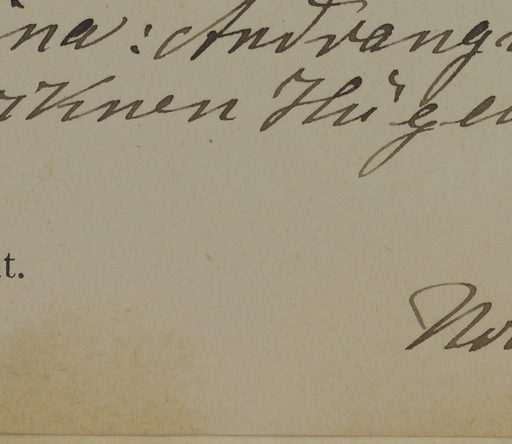 ina: Andrang
rKnen Hügel
t.
Nor